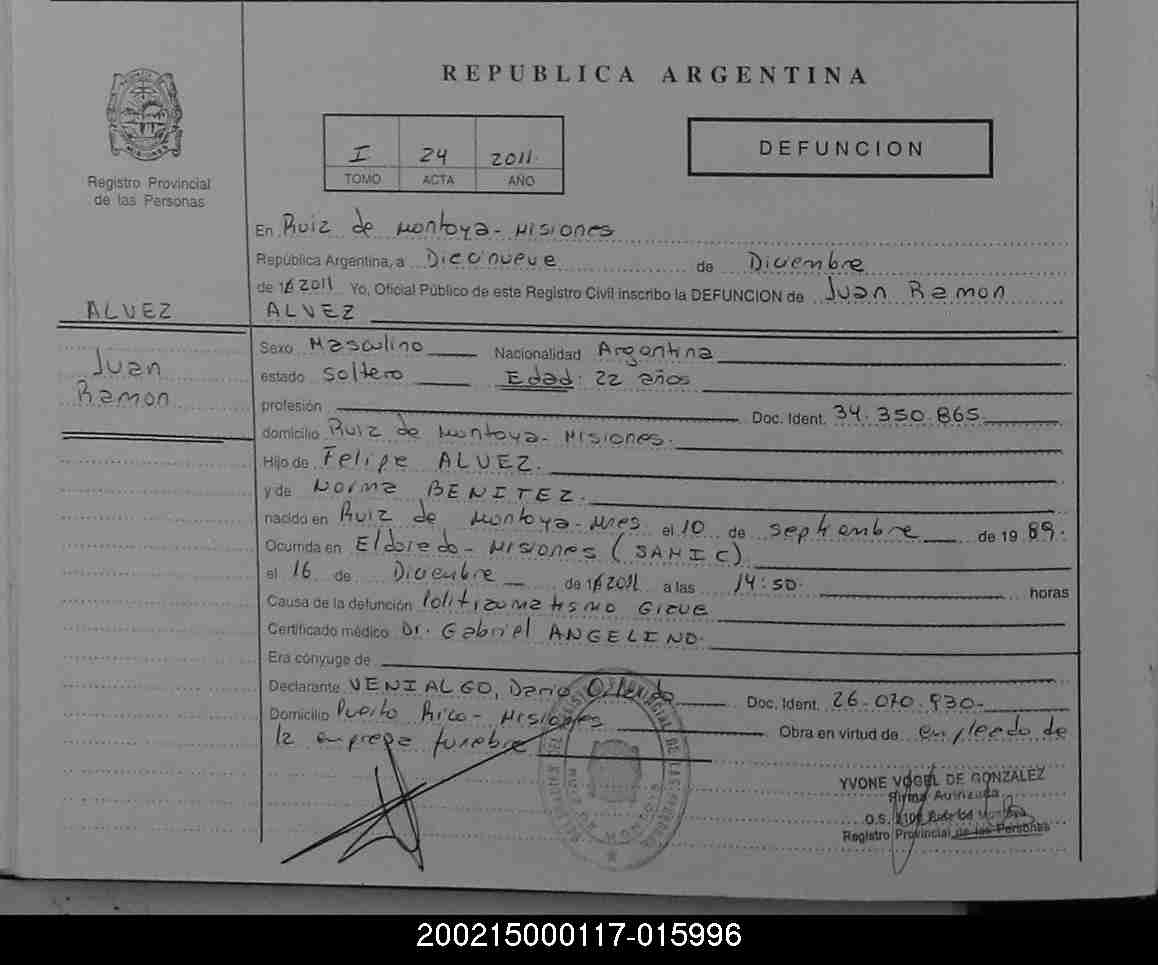 REPUBLICA ARGENTINA
Registro Provincial
de las Personas
I 24 2011.
TOMO ACTA AÑO
DEFUNCION
En Ruiz de Montoya - Misiones
República Argentina, a Diecinueve de Diciembre
de 2011 Yo, Oficial Público de este Registro Civil inscribo la DEFUNCION de Juan Ramon
ALVEZ
ALVEZ
Juan
Ramon
Sexo Masculino Nacionalidad Argentina
estado soltero Edad: 22 años
profesión Doc. Ident. 34.350.865
domicilio Ruiz de Montoya - Misiones.
Hijo de Felipe ALVEZ.
y de Norma BENITEZ.
nacido en Ruiz de Montoya - Mnes el 10 de septiembre de 1989.
Ocurrida en Eldorado - Misiones (SAMIC)
el 16 de Diciembre de 2011 a las 14:50 horas
Causa de la defunción Politraumatismo Grave
Certificado médico Dr. Gabriel ANGELINO.
Era cónyuge de
Declarante VENIALGO, Dario Doc. Ident. 26.070.930
Domicilio Puerto Rico - Misiones Obra en virtud de empleado de
la empresa funebre
YVONE VOGEL DE GONZALEZ
Firma Autorizada
O.S.
Registro Provincial de las Personas
200215000117-015996